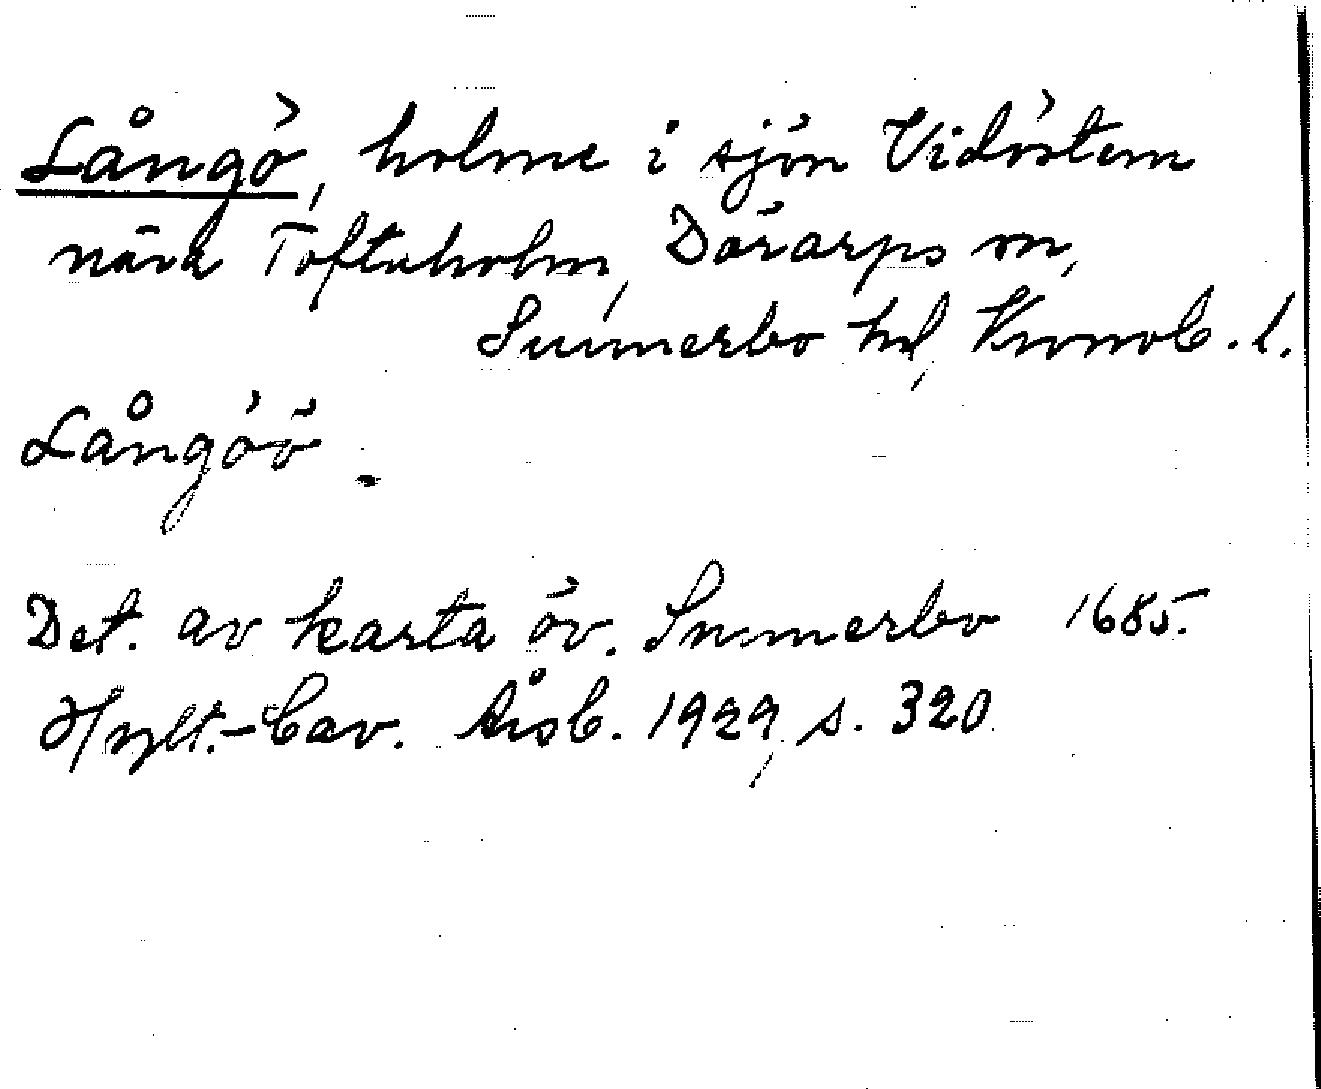 Långö, holme i sjön Vidöstern
nära Toftaholm, Dörarps sn,
Sunnerbo hd, Kronob. l.
Långöö.
Det. av karta öv. Sunnerbo 1685.
Hylt.-Cav. Årsb. 1929, s. 320